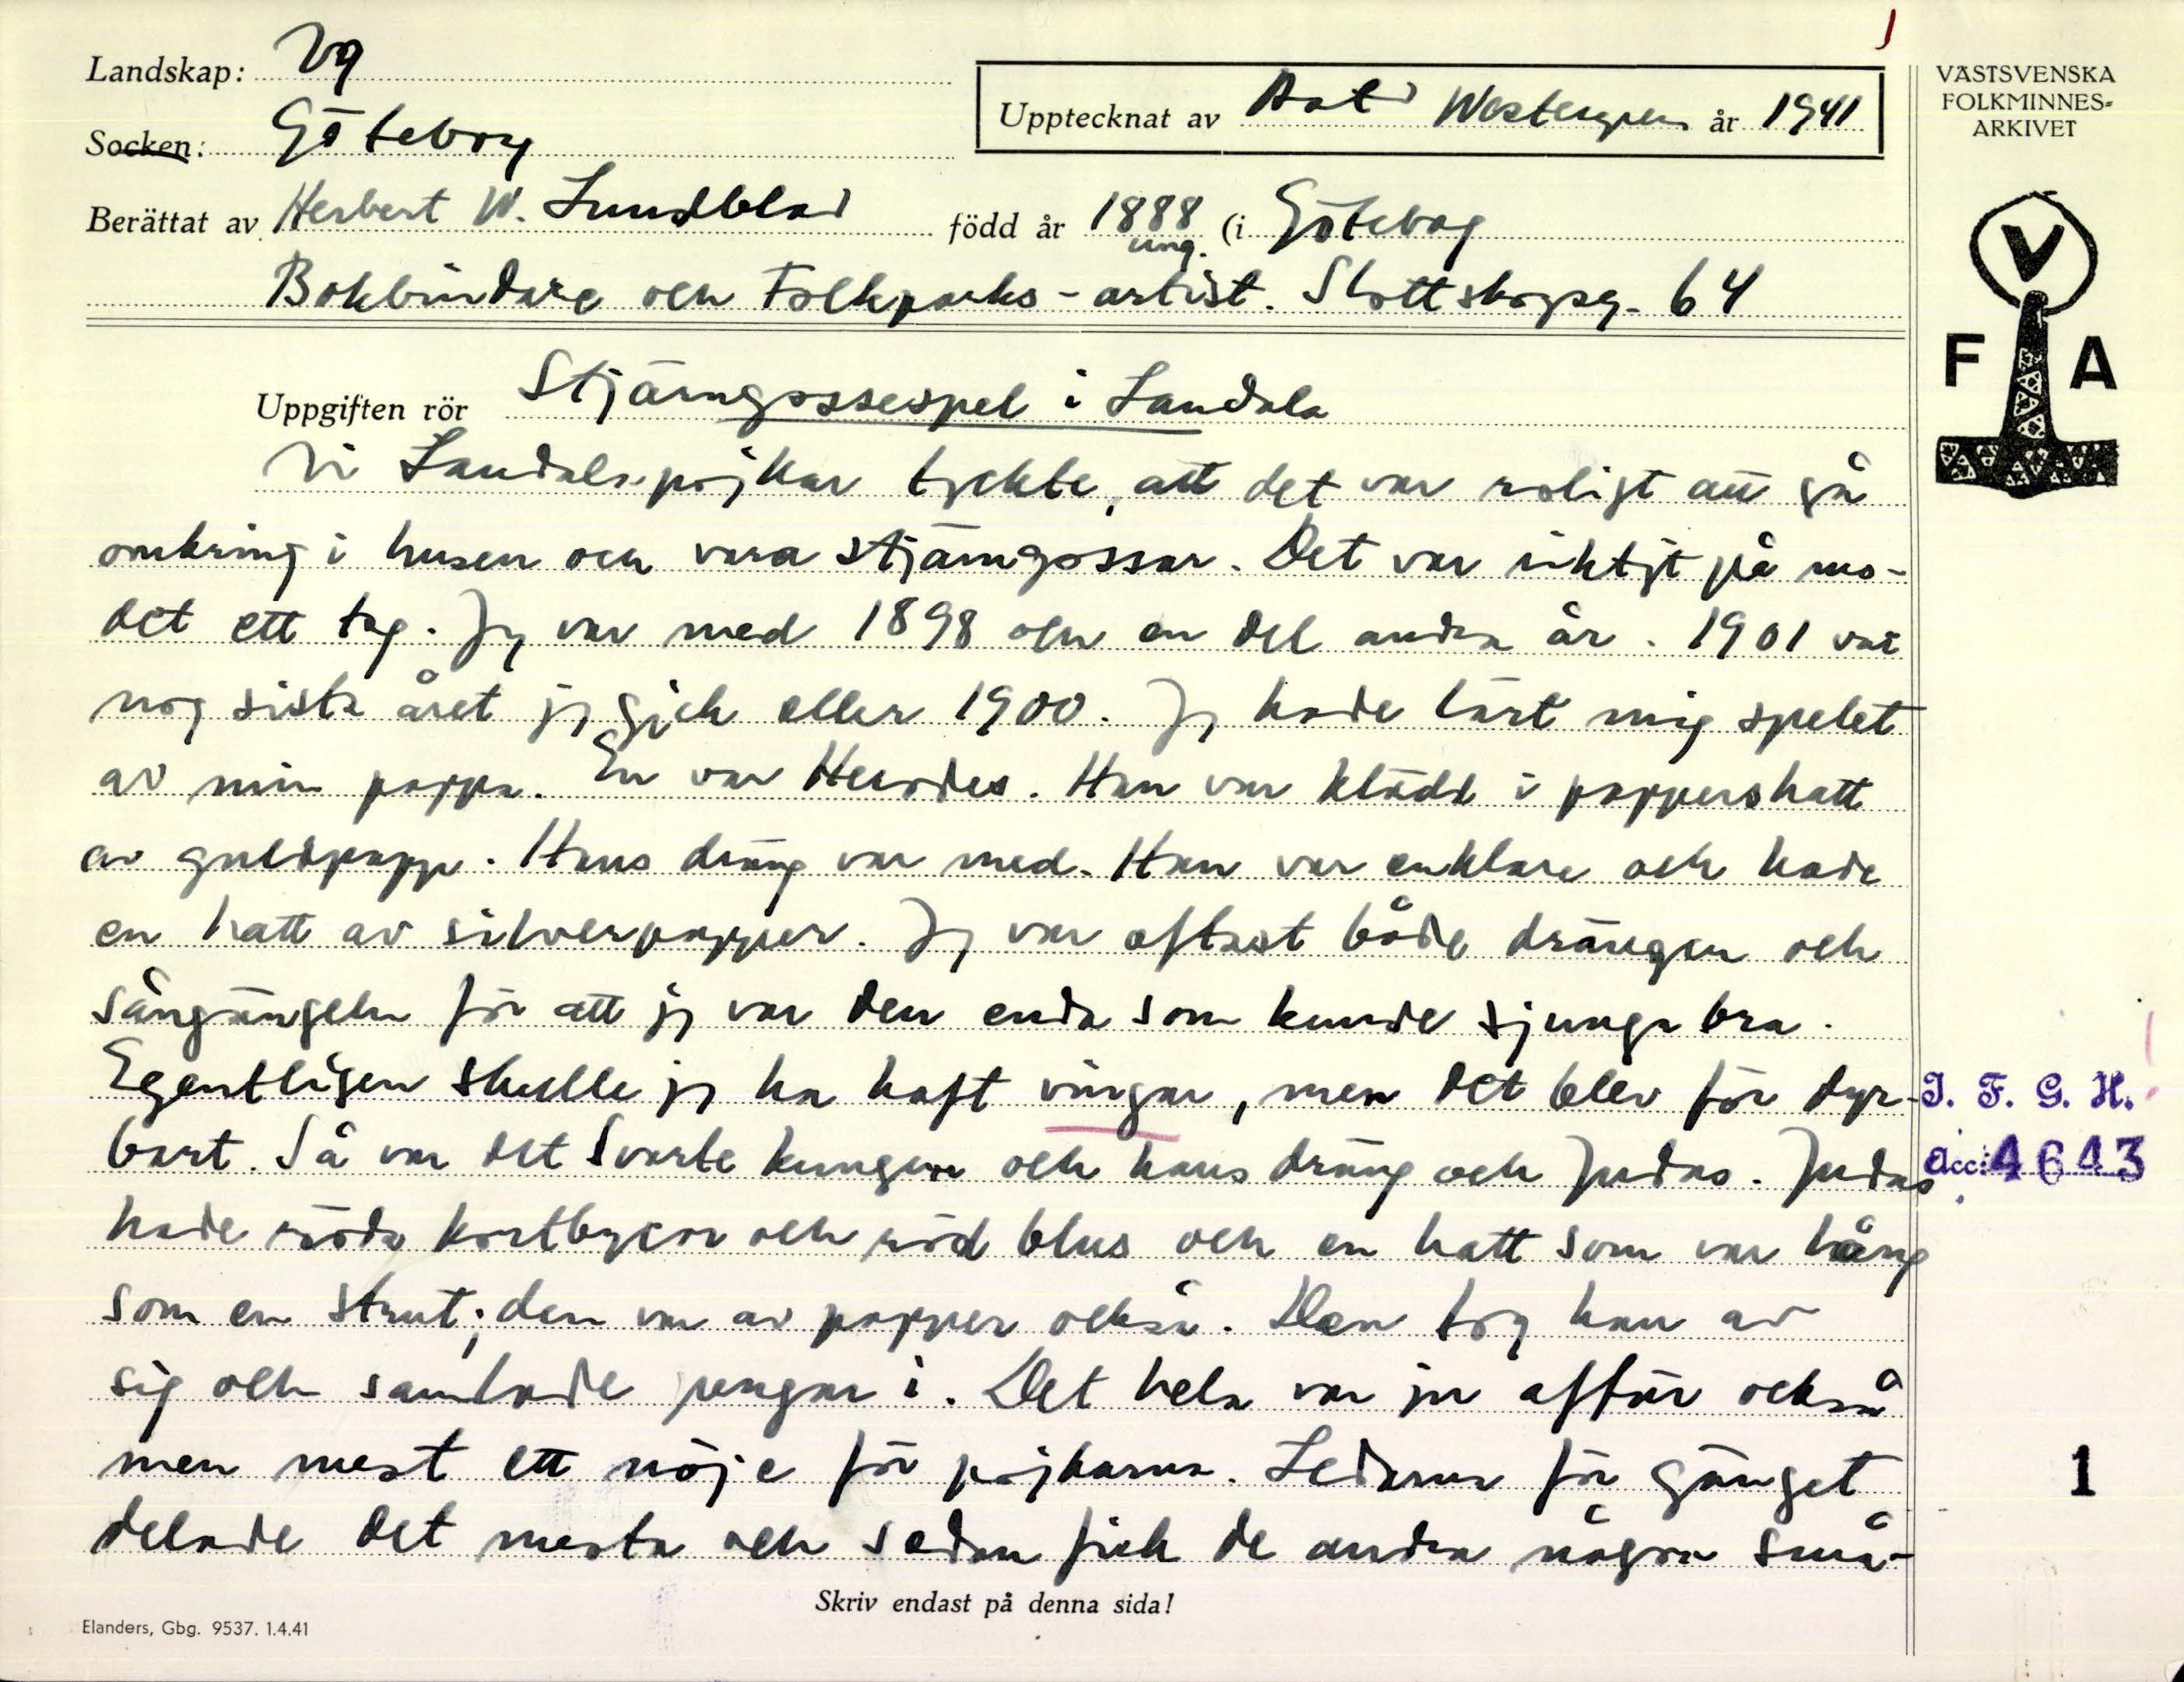 Landskap: Vg
Socken: Göteborg
Upptecknat av Westergren år 1941
Berättat av Herbert W. Lundblad född år 1888 ung. (i Göteborg
Bokbindare och Folkparks-artist. Slottskogsg. 64
Uppgiften rör Stjärngossespel i Landala
Vi Landalapojkar tyckte, att det var roligt att gå
omkring i husen och vara stjärngossar. Det var riktigt på mo-
det ett tag. Jag var med 1898 och en del andra år. 1901 var
nog sista året jag gick eller 1900. Jag hade lärt mig spelet
av min pappa. En var Herodes. Han var klädd i pappershatt
av guldpapp. Hans dräng var med. Han var enklare och hade
en hatt av silverpapper. Jag var oftast både drängen och
sångängeln för att jag var den enda som kunde sjunga bra.
Egentligen skulle jag ha haft vingar, men det blev för dyr-
bart. Så var det Svarte kungen och hans dräng och Judas. Judas
hade röda kortbyxor och röd blus och en hatt som var lång
som en strut; den var av papper också. Den tog han av
sig och samlade pengar i. Det hela var ju affär också
men mest ett nöje för pojkarna. Ledarna för gänget
delade det mesta och sedan fick de andra några små-
Skriv endast på denna sida!
Elanders, Gbg. 9537. 1.4.41
VÄSTSVENSKA
FOLKMINNES=
ARKIVET
V
F A
I. F. G. H.
Acc: 4643
1